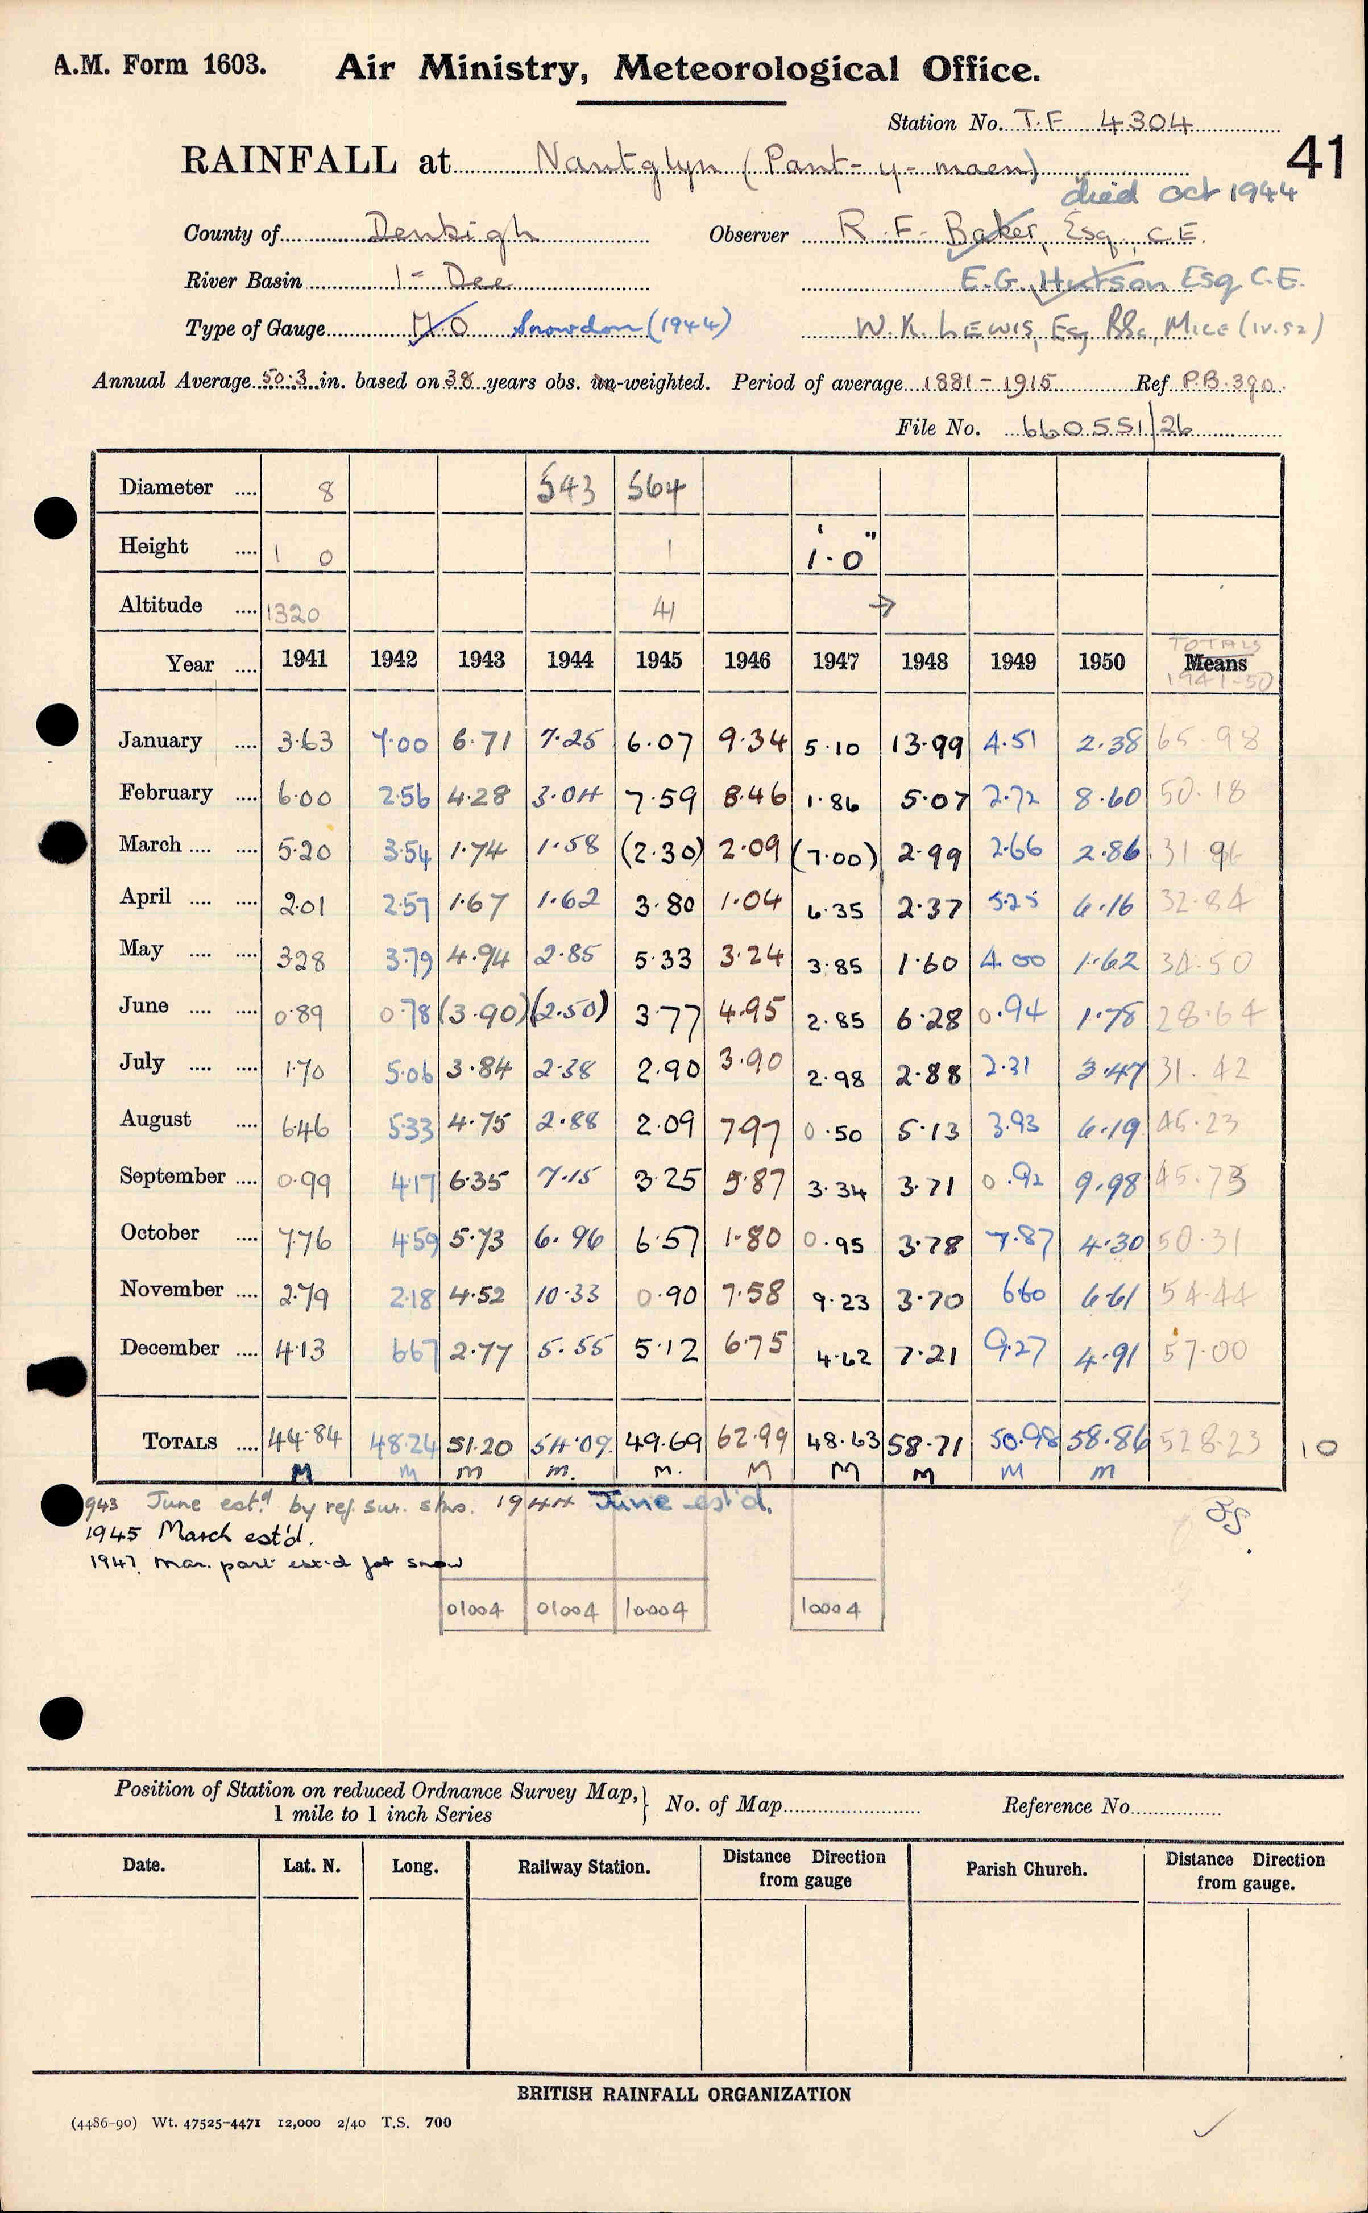 A.M. Form 1603. Air Ministry, Meteorological Office.
Station No. T.F 4304
41
RAINFALL at Nantglyn (Pant-y-maen)
died Oct 1944
County of Denbigh Observer R. F. Baker, Esq., C.E.
River Basin 1- Dee E.G. Hutson Esq C.E.
Type of Gauge M.O Snowdon (1944) W.K. LEWIS, Esq BSc, MICE (IV.52)
Annual Average 50.3 in. based on 38 years obs. un-weighted. Period of average 1881-1915 Ref P.B.390
File No. 660551/26
Diameter .... 8 543 564
Height .... 1 0 1 1'·0"
Altitude .... 1320 41 →
TOTALS
Year .... 1941 1942 1943 1944 1945 1946 1947 1948 1949 1950 Means
1941-50
January .... 3.63 7.00 6.71 7.25 6.07 9.34 5.10 13.99 4.51 2.38 65.98
February .... 6.00 2.56 4.28 3.04 7.59 8.46 1.86 5.07 2.72 8.60 50.18
March .... .... 5.20 3.54 1.74 1.58 (2.30) 2.09 (7.00) 2.99 2.66 2.86 31 96
April .... .... 2.01 2.57 1.67 1.62 3.80 1.04 6.35 2.37 5.25 6.16 32.84
May .... .... 3.28 3.79 4.94 2.85 5.33 3.24 3.85 1.60 4.00 1.62 34.50
June .... .... 0.89 0.78 (3.90) (2.50) 3.77 4.95 2.85 6.28 0.94 1.78 28.64
July .... .... 1.70 5.06 3.84 2.38 2.90 3.90 2.98 2.88 2.31 3.47 31.42
August .... 6.46 5.33 4.75 2.88 2.09 7.97 0.50 5.13 3.93 6.19 45.23
September .... 0.99 4.17 6.35 7.15 3.25 5.87 3.34 3.71 0.92 9.98 45.73
October .... 7.76 4.59 5.73 6.96 6.57 1.80 0.95 3.78 7.87 4.30 50.31
November .... 2.79 2.18 4.52 10.33 0.90 7.58 9.23 3.70 6.60 6.61 54.44
December .... 4.13 6.67 2.77 5.55 5.12 6.75 4.62 7.21 9.27 4.91 57.00
TOTALS .... 44.84 48.24 51.20 54.09 49.69 62.99 48.63 58.71 50.98 58.86 528.23 10
M M m m. m. M M M M m
943 June est.d by ref. sur. stns. 1944 June est'd.
1945 March est'd.
1947. Mar. part est'd for snow
01004 01004 10004 10004
Position of Station on reduced Ordnance Survey Map, } No. of Map Reference No.
1 mile to 1 inch Series
Date. Lat. N. Long. Railway Station. Distance Direction from gauge Parish Church. Distance Direction from gauge.
BRITISH RAINFALL ORGANIZATION
(4486-90) Wt. 47525-4471 12,000 2/40 T.S. 700